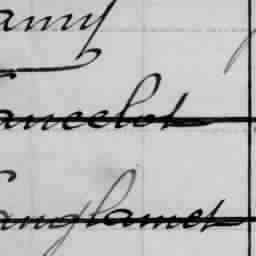 amy
ancelot
anglamet